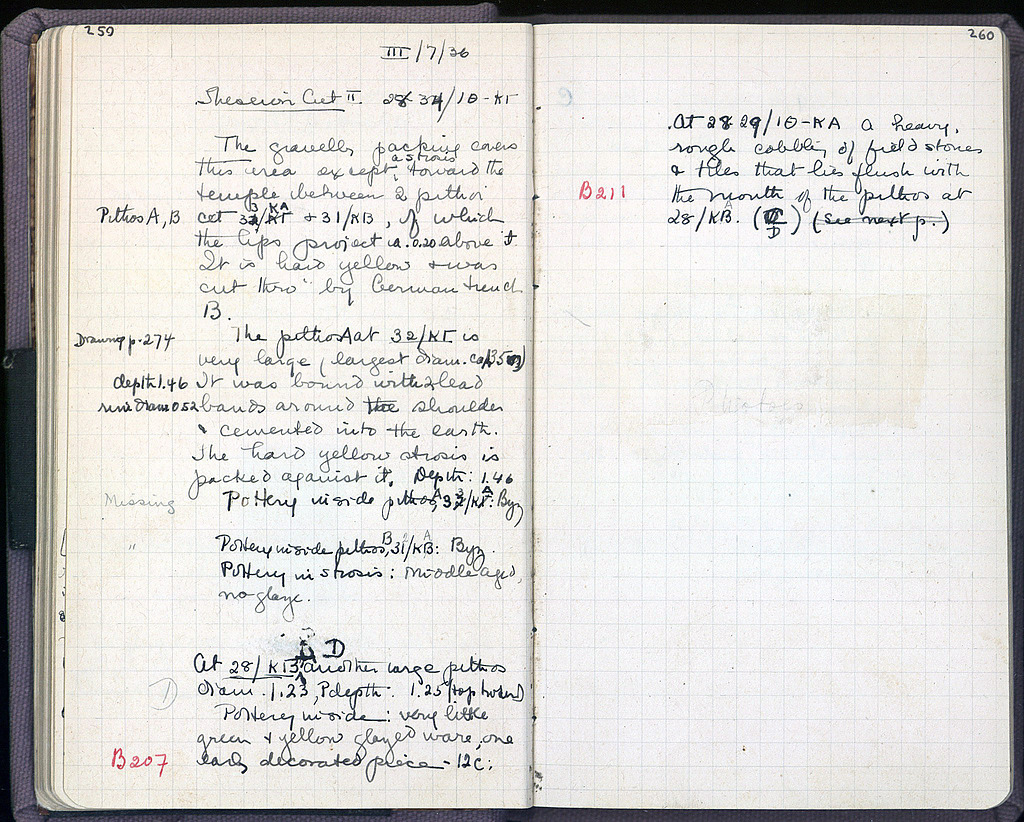 259
III/7/36
Theseion Cut II. 28 34/10-KΓ
The gravelly packing covers
a strosis
this area except, toward the
temple between 2 pithoi
Pithos A, B
cut 33/KA & 31/KB, of which
the lips project ca. 0.20 above it
It is hard yellow & was
cut thro' by German trench
B.
Drawing p. 274
The pithos A at 32/KΓ is
very large (largest diam. ca
depth 1.46
It was bound with 2 lead
rim diam 0.52
bands around the shoulder
& cemented into the earth.
The hard yellow strosis is
packed against it. Depth: 1.46
Missing
Pottery inside pithos A, 33/KA: Byz
"
Pottery inside pithos, B 31/KB: Byz.
Pottery in strosis: Middle aged,
no glaze.
D
At 28/KB another large pithos
D
diam. 1.23, depth: 1.25 (top broken)
Pottery inside: very little
green & yellow glazed ware, one
B207
early decorated piece - 12c:
260
At 28 29/10-KA a heavy,
rough cobbling of field stones
& tiles that lies flush with
B211
the mouth of the pithos at
28/KB. (D) (see next p.)